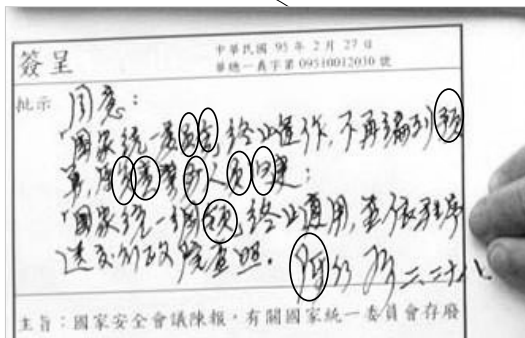 簽呈
中華民國 95 年 2 月 27 日
華總一義字第 09510012030 號
批示 同意:
「國家統一委員會」終止運作,不再編列預
算,原負責業務人員
「國家統一綱領」終止適用,並依程序
送交行政院查照。 陳水扁 二.二十八.
主旨:國家安全會議陳報,有關國家統一委員會存廢